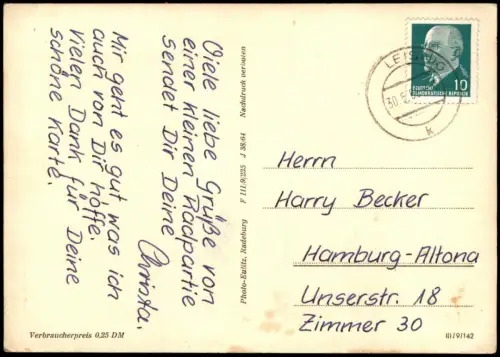 Viele liebe Grüße von
einer kleinen Radpartie
sendet Dir Deine
Christa.
Mir geht es gut was ich
auch von Dir hoffe.
Vielen Dank für Deine
schöne Karte.
Verbraucherpreis 0,25 DM
Photo-Edlitz, Radeburg F 111/9/235 J 38/64 Nachdruck verboten
LEIPZIG
k
10
DEUTSCHE
DEMOKRATISCHE REPUBLIK
Herrn
Harry Becker
Hamburg-Altona
Unserstr. 18
Zimmer 30
III/9/142